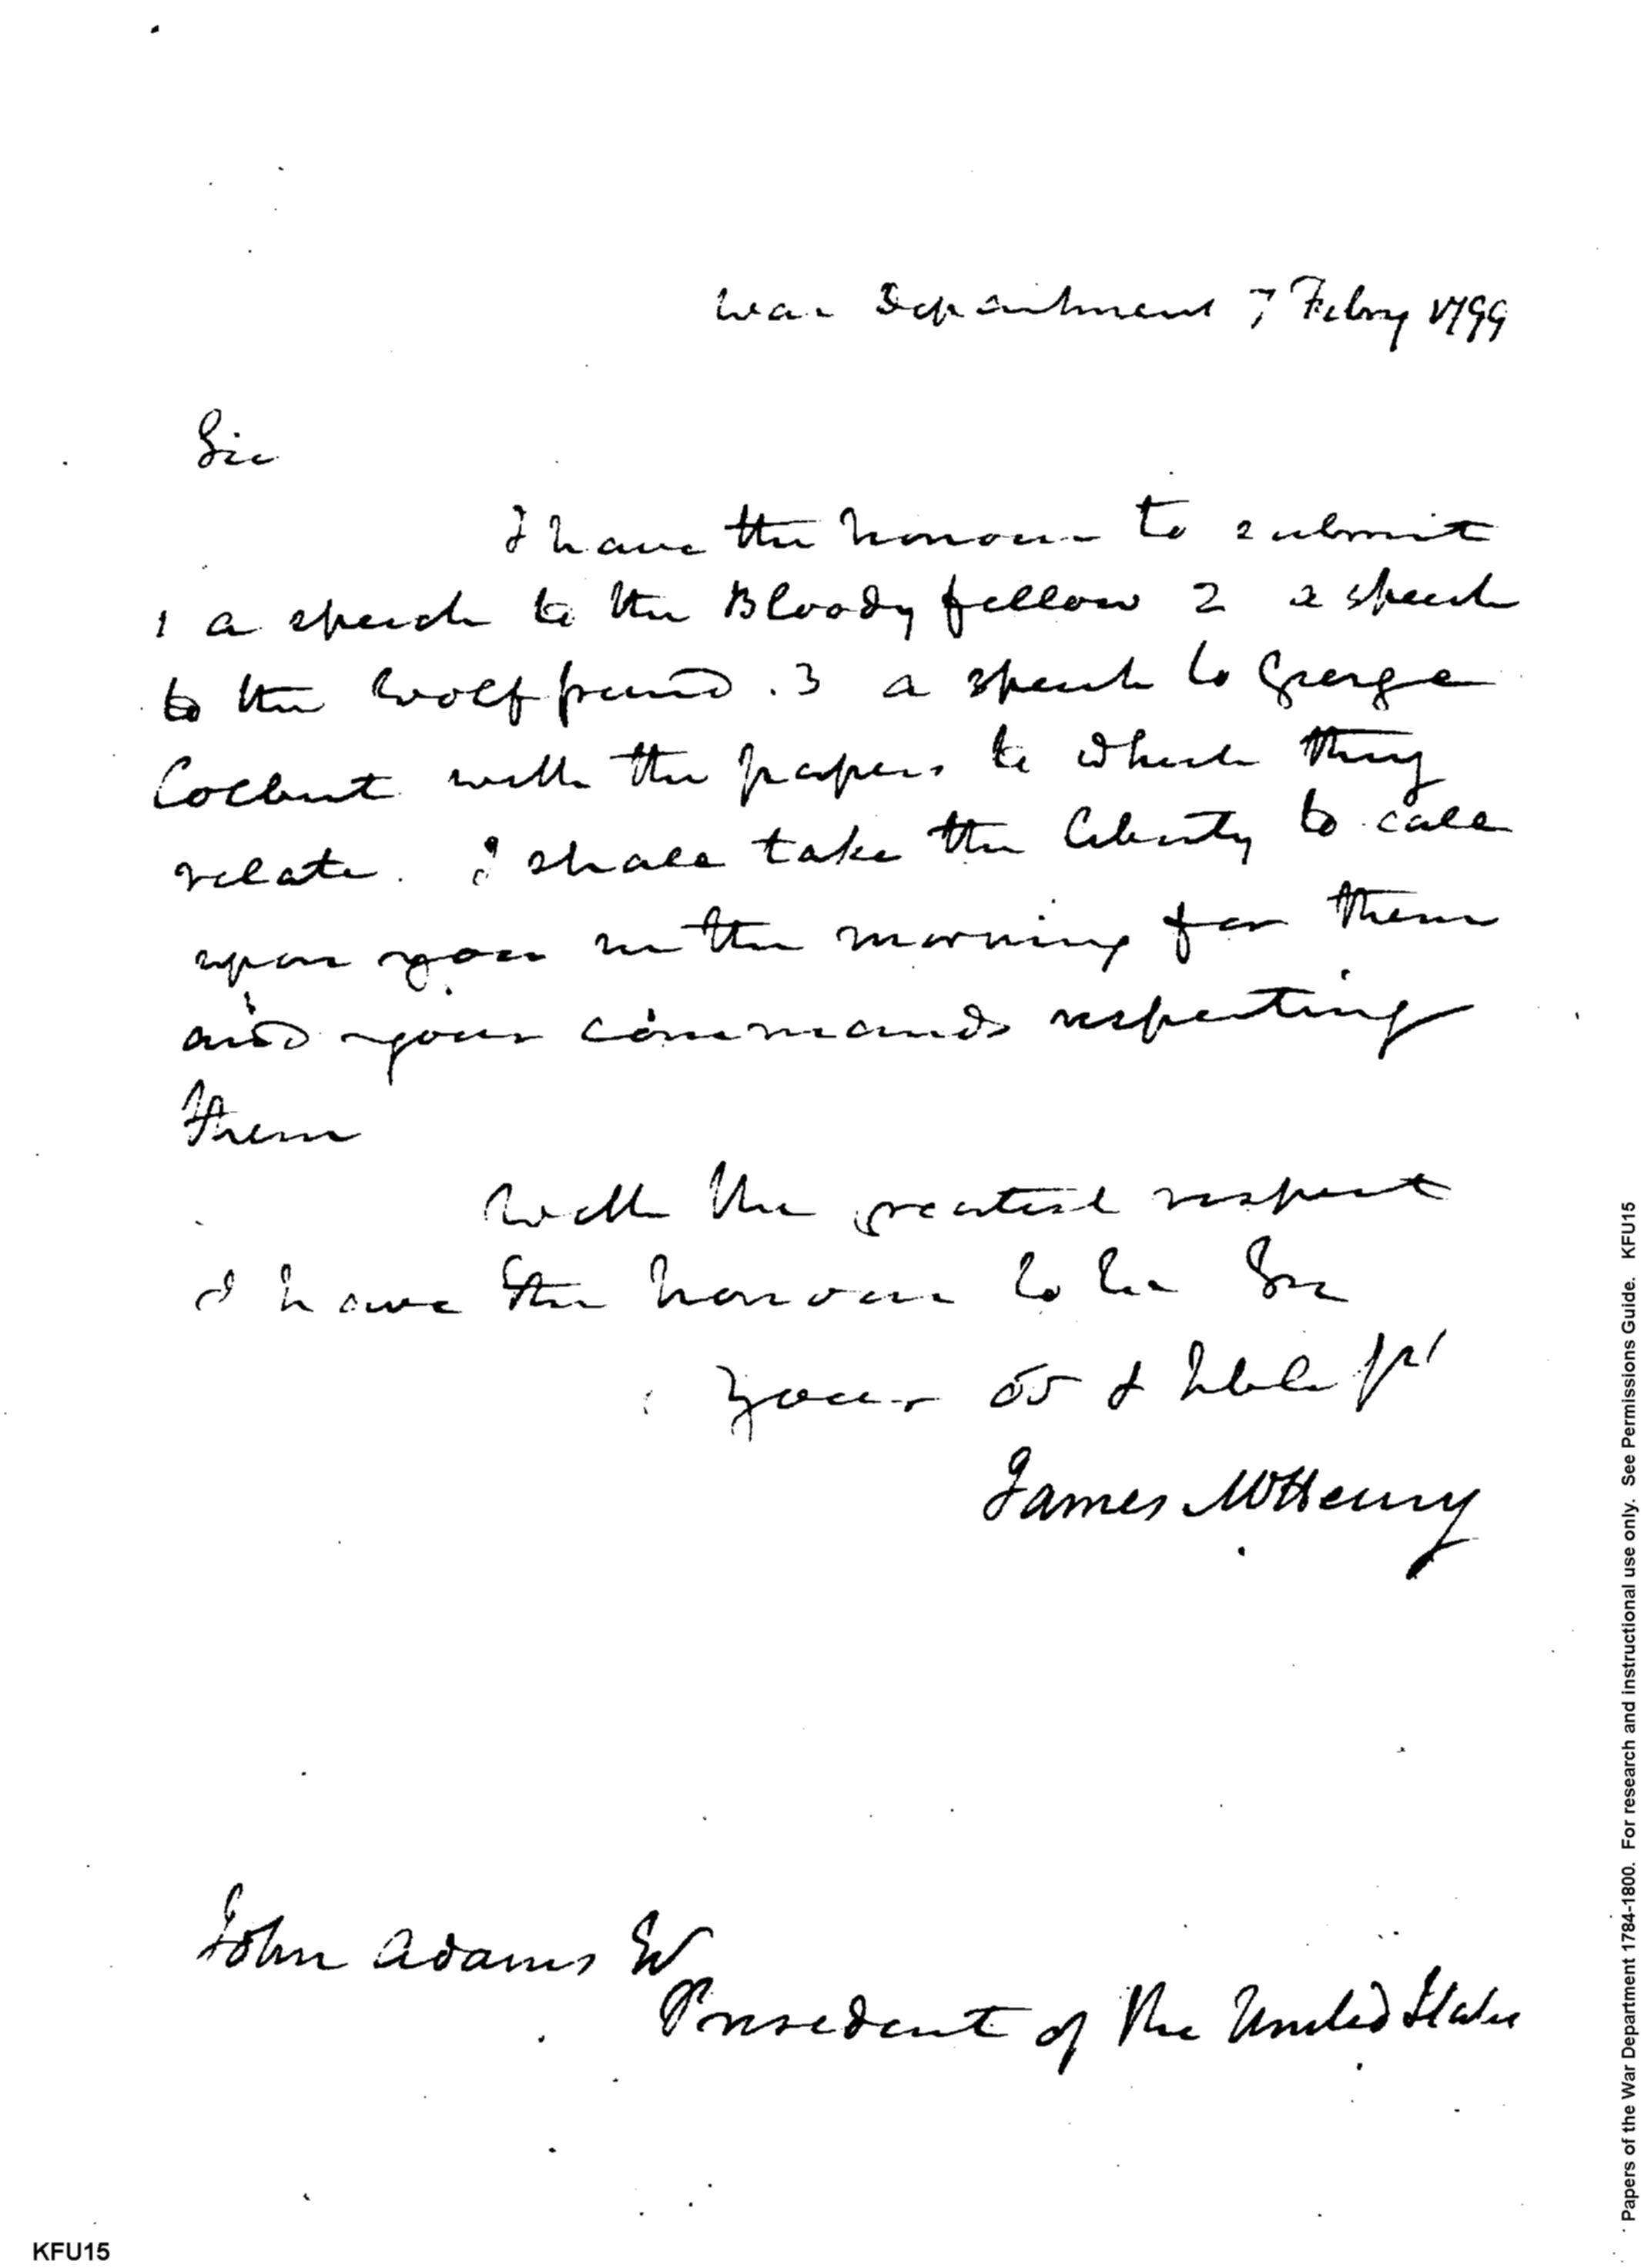 War Department 7 Febry 1799
Sir
I have the honour to submit
1 a speech to the Bloody fellow 2 a speech
to the Wolf friend . 3 a speech to George
Colbert with the papers to which they
relate. I shall take the liberty to call
upon you in the morning for them
and your commands respecting
them
With the greatest respect
I have the honour to be Sir
Your & hble
James McHenry
John Adams
President of the United States
KFU15
Papers of the War Department 1784-1800. For research and instructional use only. See Permissions Guide. KFU15